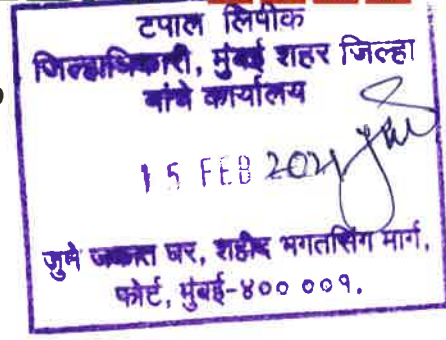 टपाल लिपीक
जिल्हाधिकारी, मुंबई शहर जिल्हा
यांचे कार्यालय
15 FEB 2021
जुने जकात घर, शहीद भगतसिंग मार्ग,
फोर्ट, मुंबई-४०० ००१.